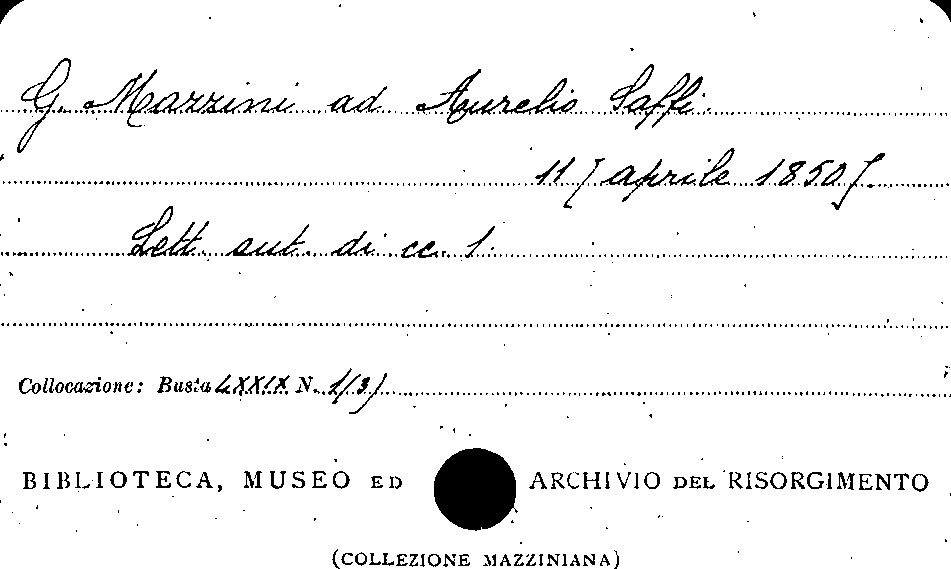 G. Mazzini ad Aurelio Saffi.
11 [aprile 1850].
Lett. aut. di cc. 1.
Collocazione: Busta LXXIX N. 1/3)
BIBLIOTECA, MUSEO ED ARCHIVIO DEL RISORGIMENTO
(COLLEZIONE MAZZINIANA)